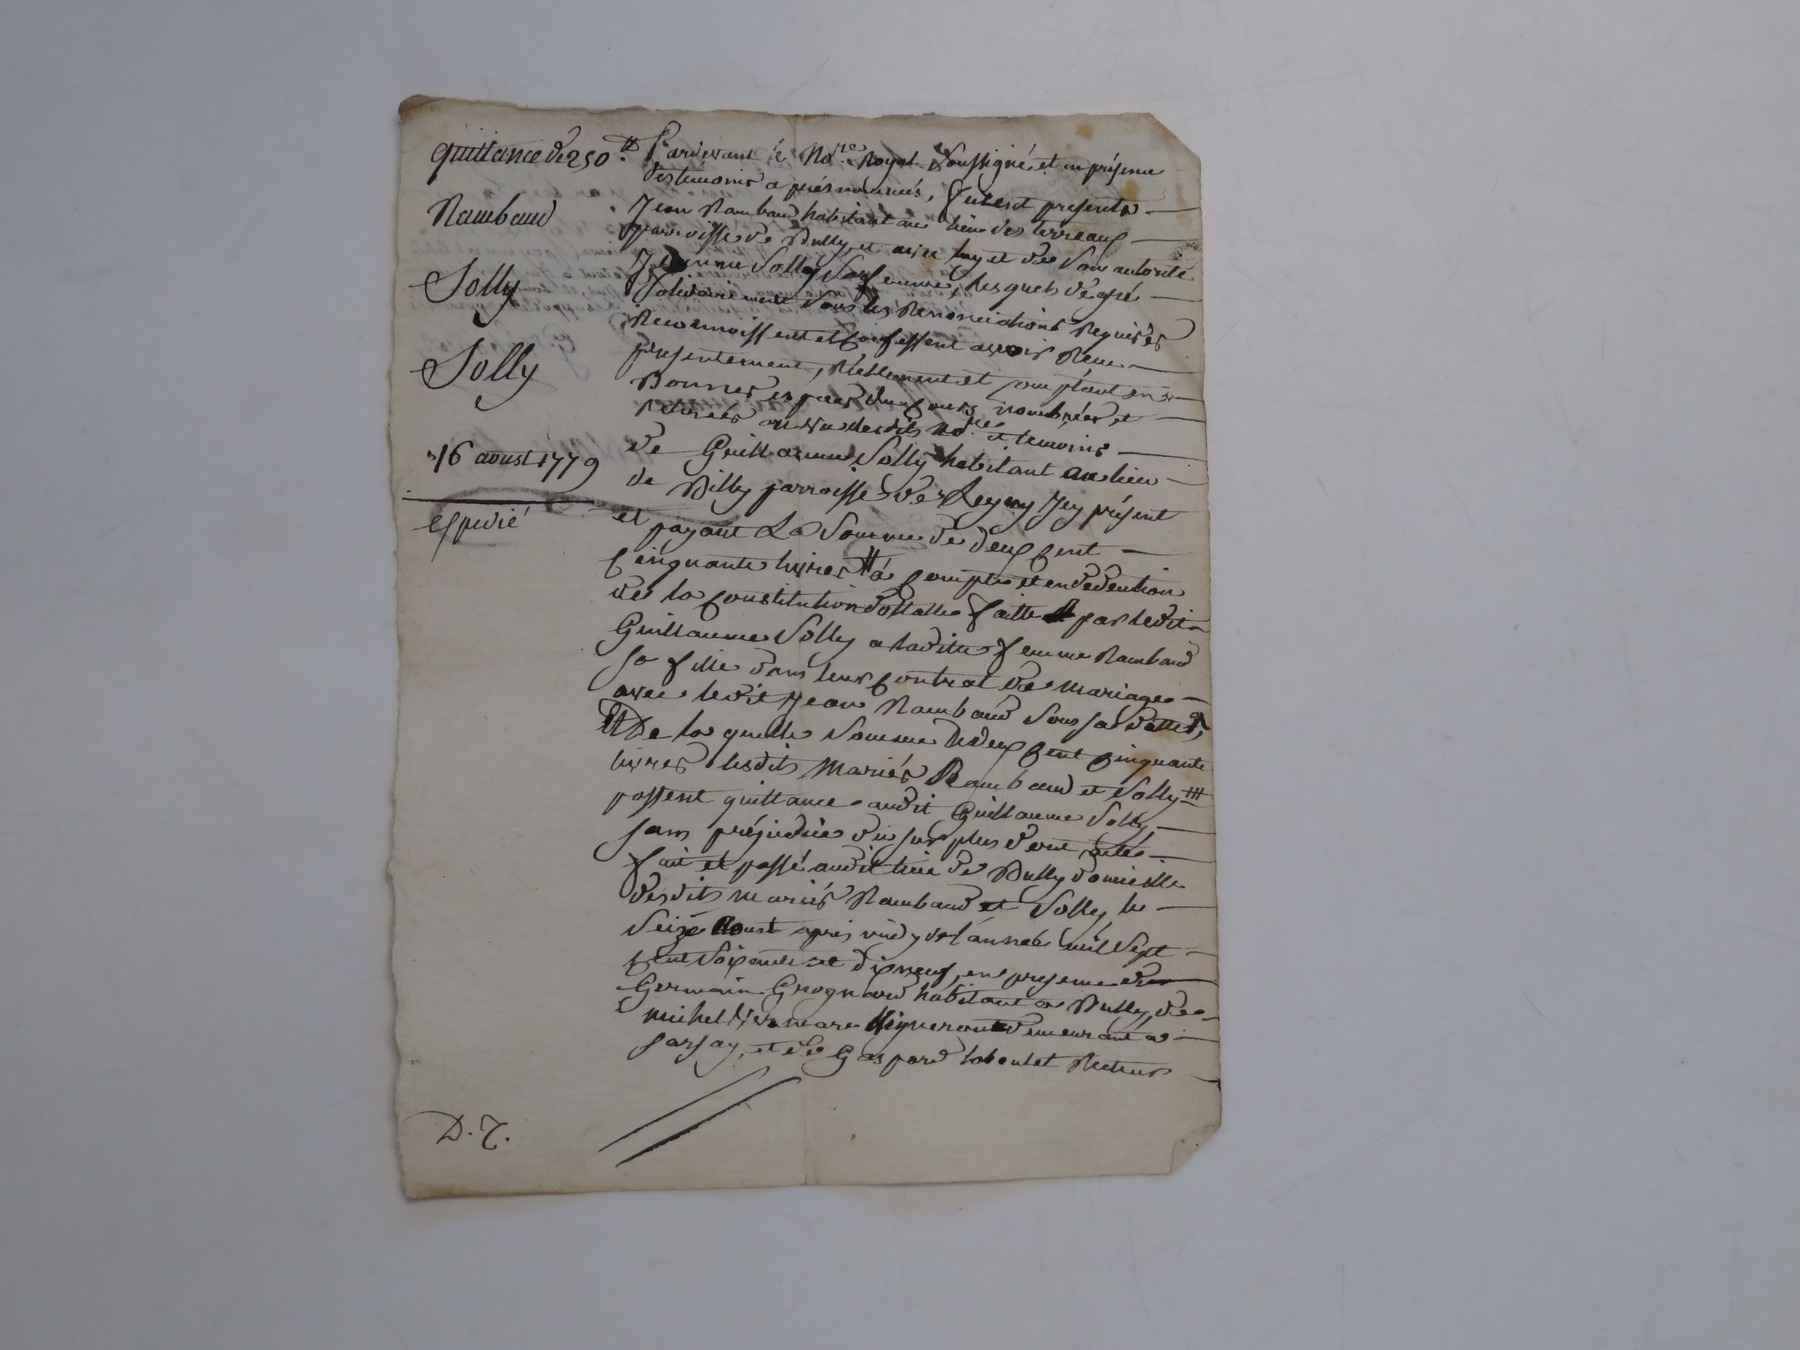 quittance de 250 ₶.
Rambaud
Solly
Solly
16 aoust 1779
expedié
Pardevant le No.re Royal Soussigné, et en présence
des temoins apres nommés, furent presents
Jean Rambaud habitant au lieu des terreaux
parroisse de Bully, et avec luy et de Son autorité
Jeanne Solly Sa femme, lesquels de gré
Solidairement Sous les Renonciations Requises
Reconnoissent et Confessent avoir Receu
présentement, Réellement et comptant en
Bonnes espèces du Cours nombrées et
retirées au vu desdits No.re et temoins
de Guillaume Solly habitant au lieu
de Billy parroisse de Legny Icy présent
et payant La Somme de deux Cent
Cinquante livres à Compte et en deduction
de la Constitution dottalle faitte par ledit
Guillaume Solly a ladite femme Rambaud
sa fille dans leur Contrat de mariage
avec ledit Jean Rambaud Sous sa datte,
De laquelle Somme de deux Cent Cinquante
livres lesdits mariés Rambaud et Solly
passent quittance audit Guillaume Solly
sans préjudice du surplus
fait et passé audit lieu de Bully domicille
desdits mariés Rambaud et Solly le
Seize Aoust après midy de l'année mil Sept
Cent Soixante et dixneuf, en presence de
Germain Grognard habitant a Bully, de
michel vigneron demeurant a
Sarsay, et de Gaspard laboulet Recteur
D. T.